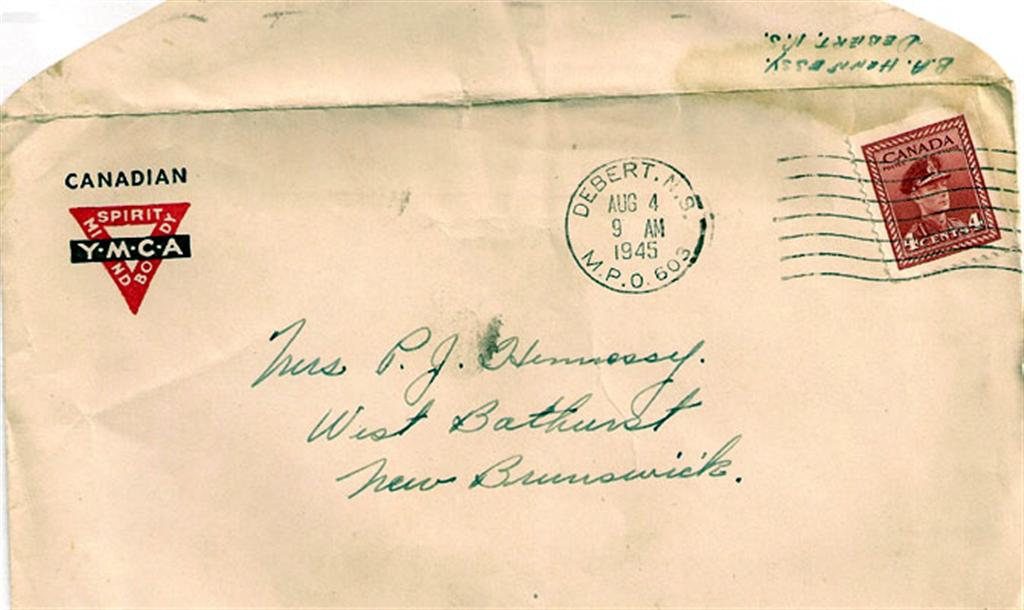 B.A. Hennessy.
Debert, N.S.
CANADIAN
SPIRIT
MIND
BODY
Y·M·C·A
DEBERT. N.S.
AUG 4
9 AM
1945
M.P.O. 603
CANADA
4 CENTS 4
Mrs P. J. Hennessy.
West Bathurst
New Brunswick.